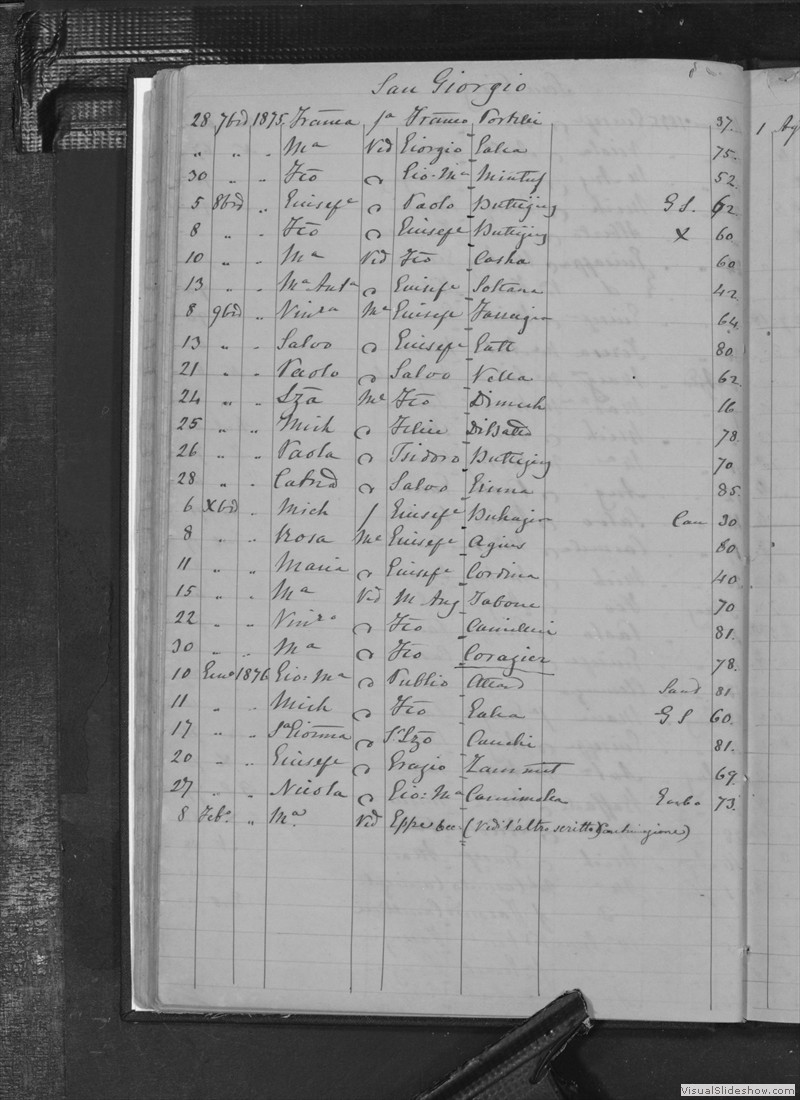 San Giorgio
28 7bre 1875 Franca fa Franco Portelli 37.
„ „ „ Ma Vid Giorgio Galea 75.
30 „ „ Fco Gio: Ma Mintuf 52
5 8bre „ Giusepe Paolo Buttigieg G S. 62
8 „ „ Fco Giusepe Buttigieg X 60
10 „ „ Ma Vid Fco Casha 60
13 „ „ Ma Anta Giusepe Soltana 42
8 9bre „ Vinza Me Giusepe Farrugia 64
13 „ „ Salvo Giusepe Gatt 80
21 „ „ Paolo Salvo Vella 62
24 „ „ Lza Me Fco Dimech 16
25 „ „ Mich Felice 78
26 „ „ Paola Isidoro Buttigieg 70
28 „ „ Salvo 85
6 Xbre „ Mich f Giusepe Buhagiar Cau 30
8 „ „ Rosa Me Giusepe Agius 80
11 „ „ Maria Giusepe Cordina 40
15 „ „ Ma Vid M Ang Tabone 70
22 „ „ Vinza Fco Camilleri 81.
30 „ „ Ma Fco 78.
10 1876 Gio: Ma Publio Attard Sand 81
11 „ „ Mich Fco Galea G S 60.
17 „ „ Lzo Cauchi 81.
20 „ „ Giusepe Grazio Zammit 69
27 „ „ Nicola Gio: Ma 73
8 Febo „ Ma Vid (Vid l'altro scritto)
1
VisualSlideshow.com